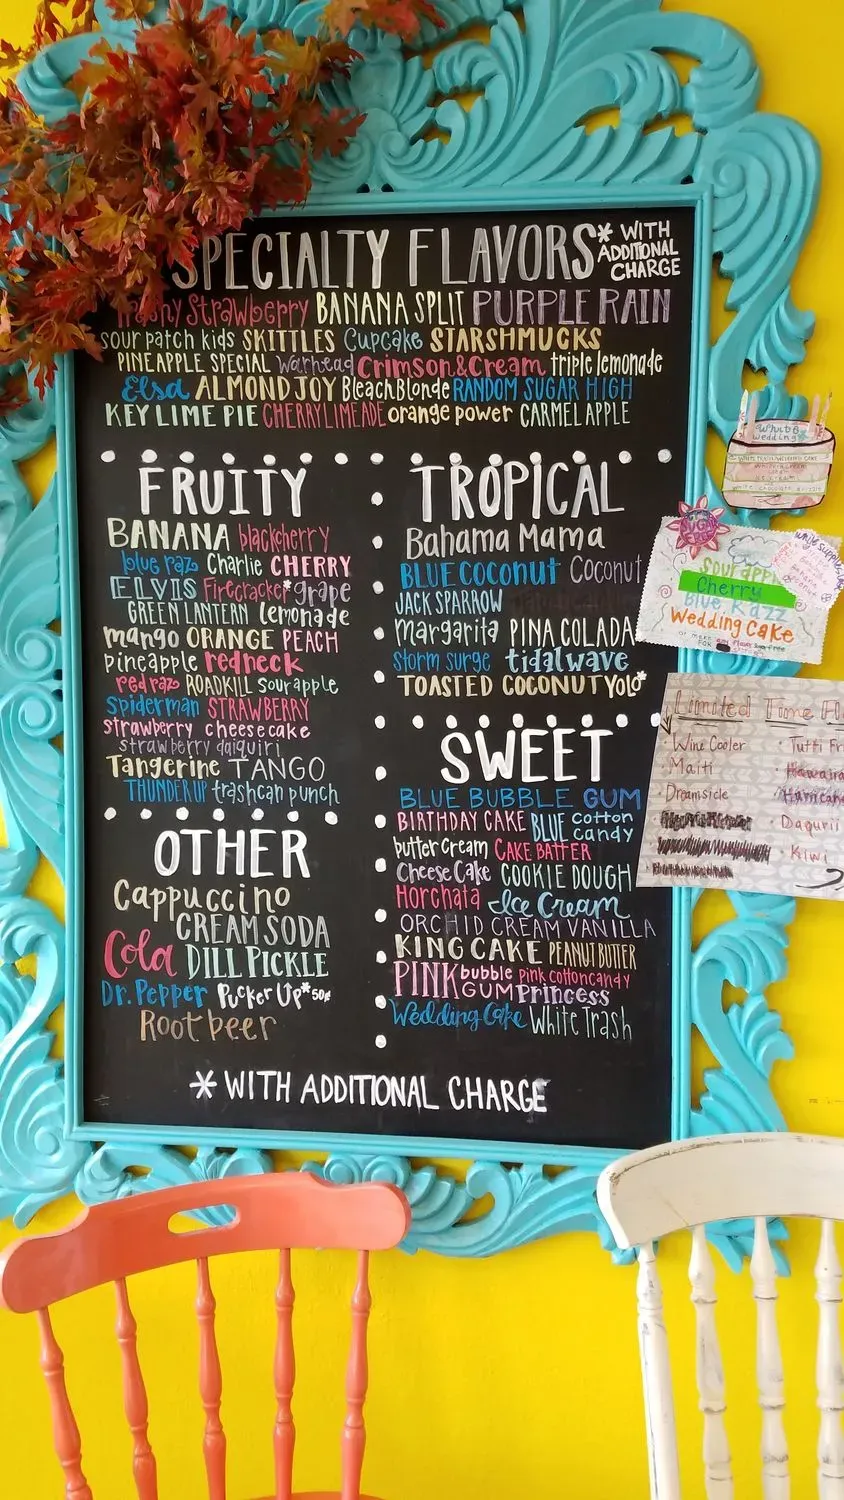 SPECIALTY FLAVORS * WITH
ADDITIONAL
CHARGE
Strawberry BANANA SPLIT PURPLE RAIN
sour patch kids SKITTLES Cupcake STARSHMUCKS
PINEAPPLE SPECIAL Warhead Crimson & Cream triple lemonade
Elsa ALMOND JOY Bleach Blonde RANDOM SUGAR HIGH
KEY LIME PIE CHERRY LIMEADE orange power CARMEL APPLE
FRUITY
BANANA blackcherry
blue raz Charlie CHERRY
ELVIS Firecracker* grape
GREEN LANTERN lemonade
mango ORANGE PEACH
pineapple redneck
red raz ROADKILL sour apple
spiderman STRAWBERRY
strawberry cheesecake
strawberry daiquiri
Tangerine TANGO
THUNDER UP trashcan punch
OTHER
Cappuccino
CREAM SODA
Cola DILL PICKLE
Dr. Pepper Pucker Up* 50¢
Root beer
TROPICAL
Bahama Mama
BLUE COCONUT Coconut
JACK SPARROW
margarita PINA COLADA
storm surge tidal wave
TOASTED COCONUT YOLO*
SWEET
BLUE BUBBLE GUM
BIRTHDAY CAKE BLUE cotton candy
butter cream CAKE BATTER
Cheese Cake COOKIE DOUGH
Horchata Ice Cream
ORCHID CREAM VANILLA
KING CAKE PEANUT BUTTER
PINK bubble GUM pink cotton candy
Princess
Wedding Cake White Trash
* WITH ADDITIONAL CHARGE
wedding
WHITE TRASH WEDDING CAKE
SUGAR FREE
sour apple
Cherry
Blue Razz
Wedding Cake
Limited Time
Wine Cooler
Maiti
Dreamsicle
Tutti
Daqurii
Kiwi